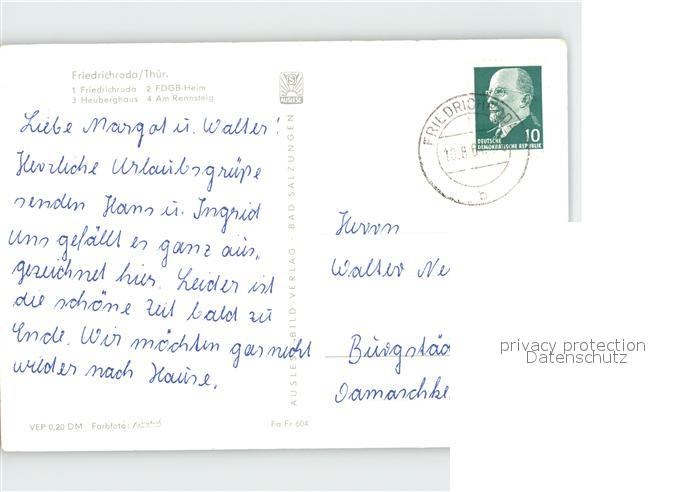 Friedrichroda/Thür.
1 Friedrichroda 2 FDGB-Heim
3 Heuberghaus 4 Am Rennsteig
Liebe Margot u. Walter!
Herzliche Urlaubsgrüße
senden Hans u. Ingrid
Uns gefällt es ganz aus-
gezeichnet hier. Leider ist
die schöne Zeit bald zu
Ende. Wir möchten gar nicht
wieder nach Hause.
VEP 0,20 DM Farbfoto:
Fa Fr 604
AUSLESE-BILD-VERLAG · BAD SALZUNGEN
AUSLESE
FRIEDRICHRODA
b
10
DEUTSCHE
DEMOKRATISCHE REPUBLIK
Herrn
Walter Ne
Burgstäd
Damaschke
privacy protection
Datenschutz